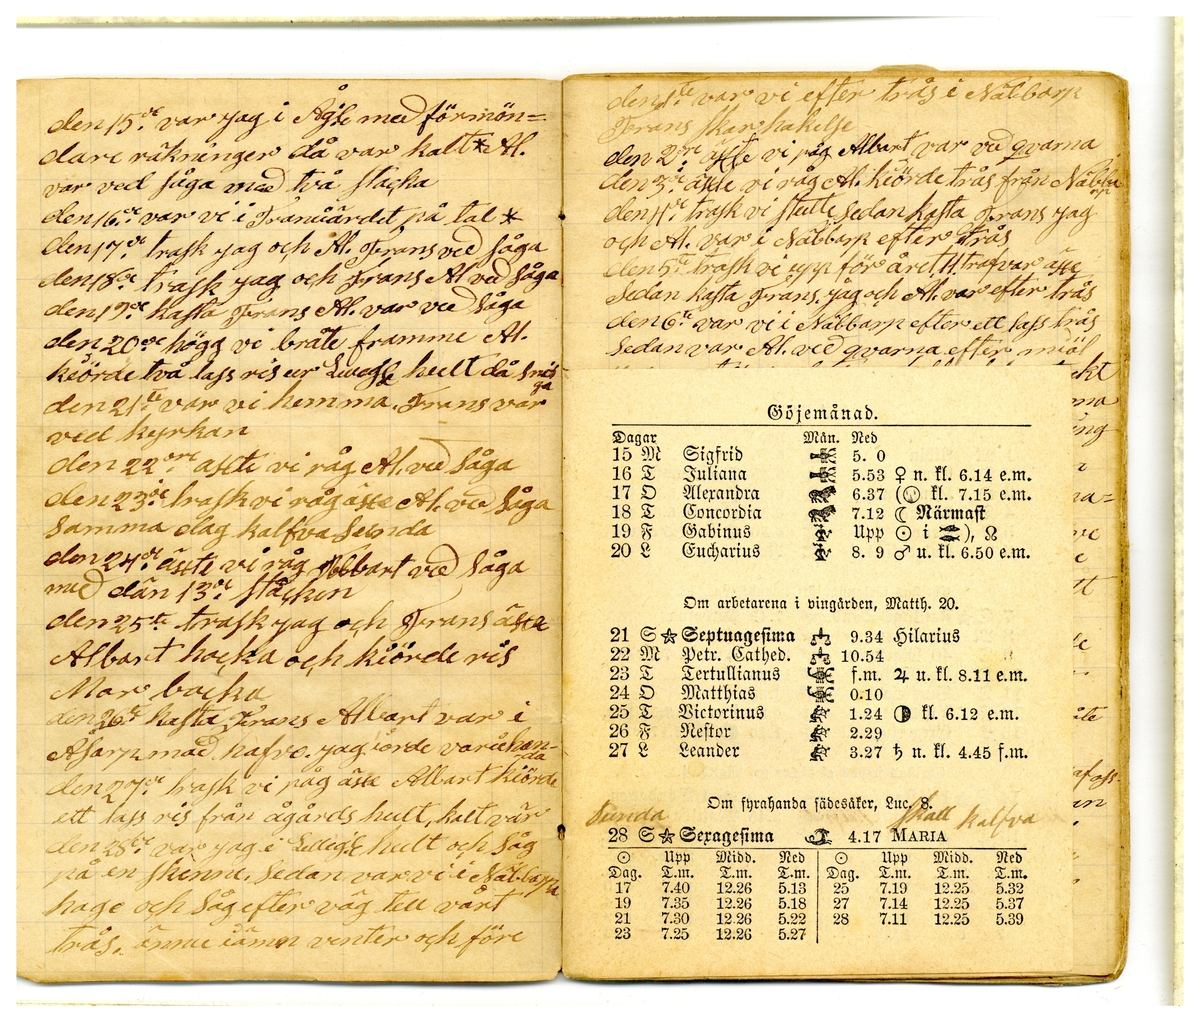 den 15de var jag i med förmön=
dare räkninger då var kalt * Al.
var ved såga med två stäcka
den 16de var vi i på tal *
den 17de trask jag och Al. Frans ved såga
den 18de trask jag och Frans Al ved såga
den 19de kasta Frans Al. var ved såga
den 20de höga vi bråte framme Al.
kiörde två lass ris ur hult då snö
ga
den 21te var vi hemma. Frans var
ved kyrkan
den 22dre äste vi råg Al. ved såga
den 23de trask vi råg äste Al. ved såga
Samma dag kalfva Senda
den 24de äste vi råg Albart ved såga
med dän 13de stäcken
den 25te trask jag och Frans äste
Albart hacka och kiörde ris
Mor backa
den 26te kasta Frans Albart var i
Åsarp mad hafve. jag iörde
den 27de trask vi råg äste Albart kiörde
ett lass ris från ågårds hult, kalt vär
den 28de var jag i hult och såg
på en skenne, Sedan var vi i Näbbarps
hage och såg efter väg tell vårt
trås. ännu iämn venter och före
den 1te var vi efter trås i Näbbarp
Frans skar hakelse
den 2dre äste vi råg Albart var ved qvarna
den 3de äste vi råg Al. kiörde trås från Näbba
rp
den 4de trask vi slutte Sedan kasta Frans jag
och Al. var i Näbbarp efter trås
den 5te trask vi upp för året H. traf var äste
Sedan kasta Frans. jag och Al. var efter trås
den 6te var vi i Näbbarp efter ett lass trås
Sedan var Al. ved qvarna efter miöl
Göjemånad.
Dagar Mån. Ned
15 M Sigfrid 5. 0
16 T Juliana 5.53 ♀ n. kl. 6.14 e.m.
17 O Alexandra 6.37 ( kl. 7.15 e.m.
18 T Concordia 7.12 ☾ Närmast
19 F Gabinus Upp ☉ i ♓), ☊
20 L Eucharius 8. 9 ♂ u. kl. 6.50 e.m.
Om arbetarena i vingården, Matth. 20.
21 S ☆ Septuagesima 9.34 Hilarius
22 M Petr. Cathed. 10.54
23 T Tertullianus f.m. ♃ u. kl. 8.11 e.m.
24 O Matthias 0.10
25 T Victorinus 1.24 kl. 6.12 e.m.
26 F Nestor 2.29
27 L Leander 3.27 ♄ n. kl. 4.45 f.m.
Om fyrahanda sädesåker, Luc. 8.
Senda skall kalfva
28 S ☆ Sexagesima 4.17 MARIA
☉ Upp Midd. Ned ☉ Upp Midd. Ned
Dag. T.m. T.m. T.m. Dag. T.m. T.m. T.m.
17 7.40 12.26 5.13 25 7.19 12.25 5.32
19 7.35 12.26 5.18 27 7.14 12.25 5.37
21 7.30 12.26 5.22 28 7.11 12.25 5.39
23 7.25 12.26 5.27